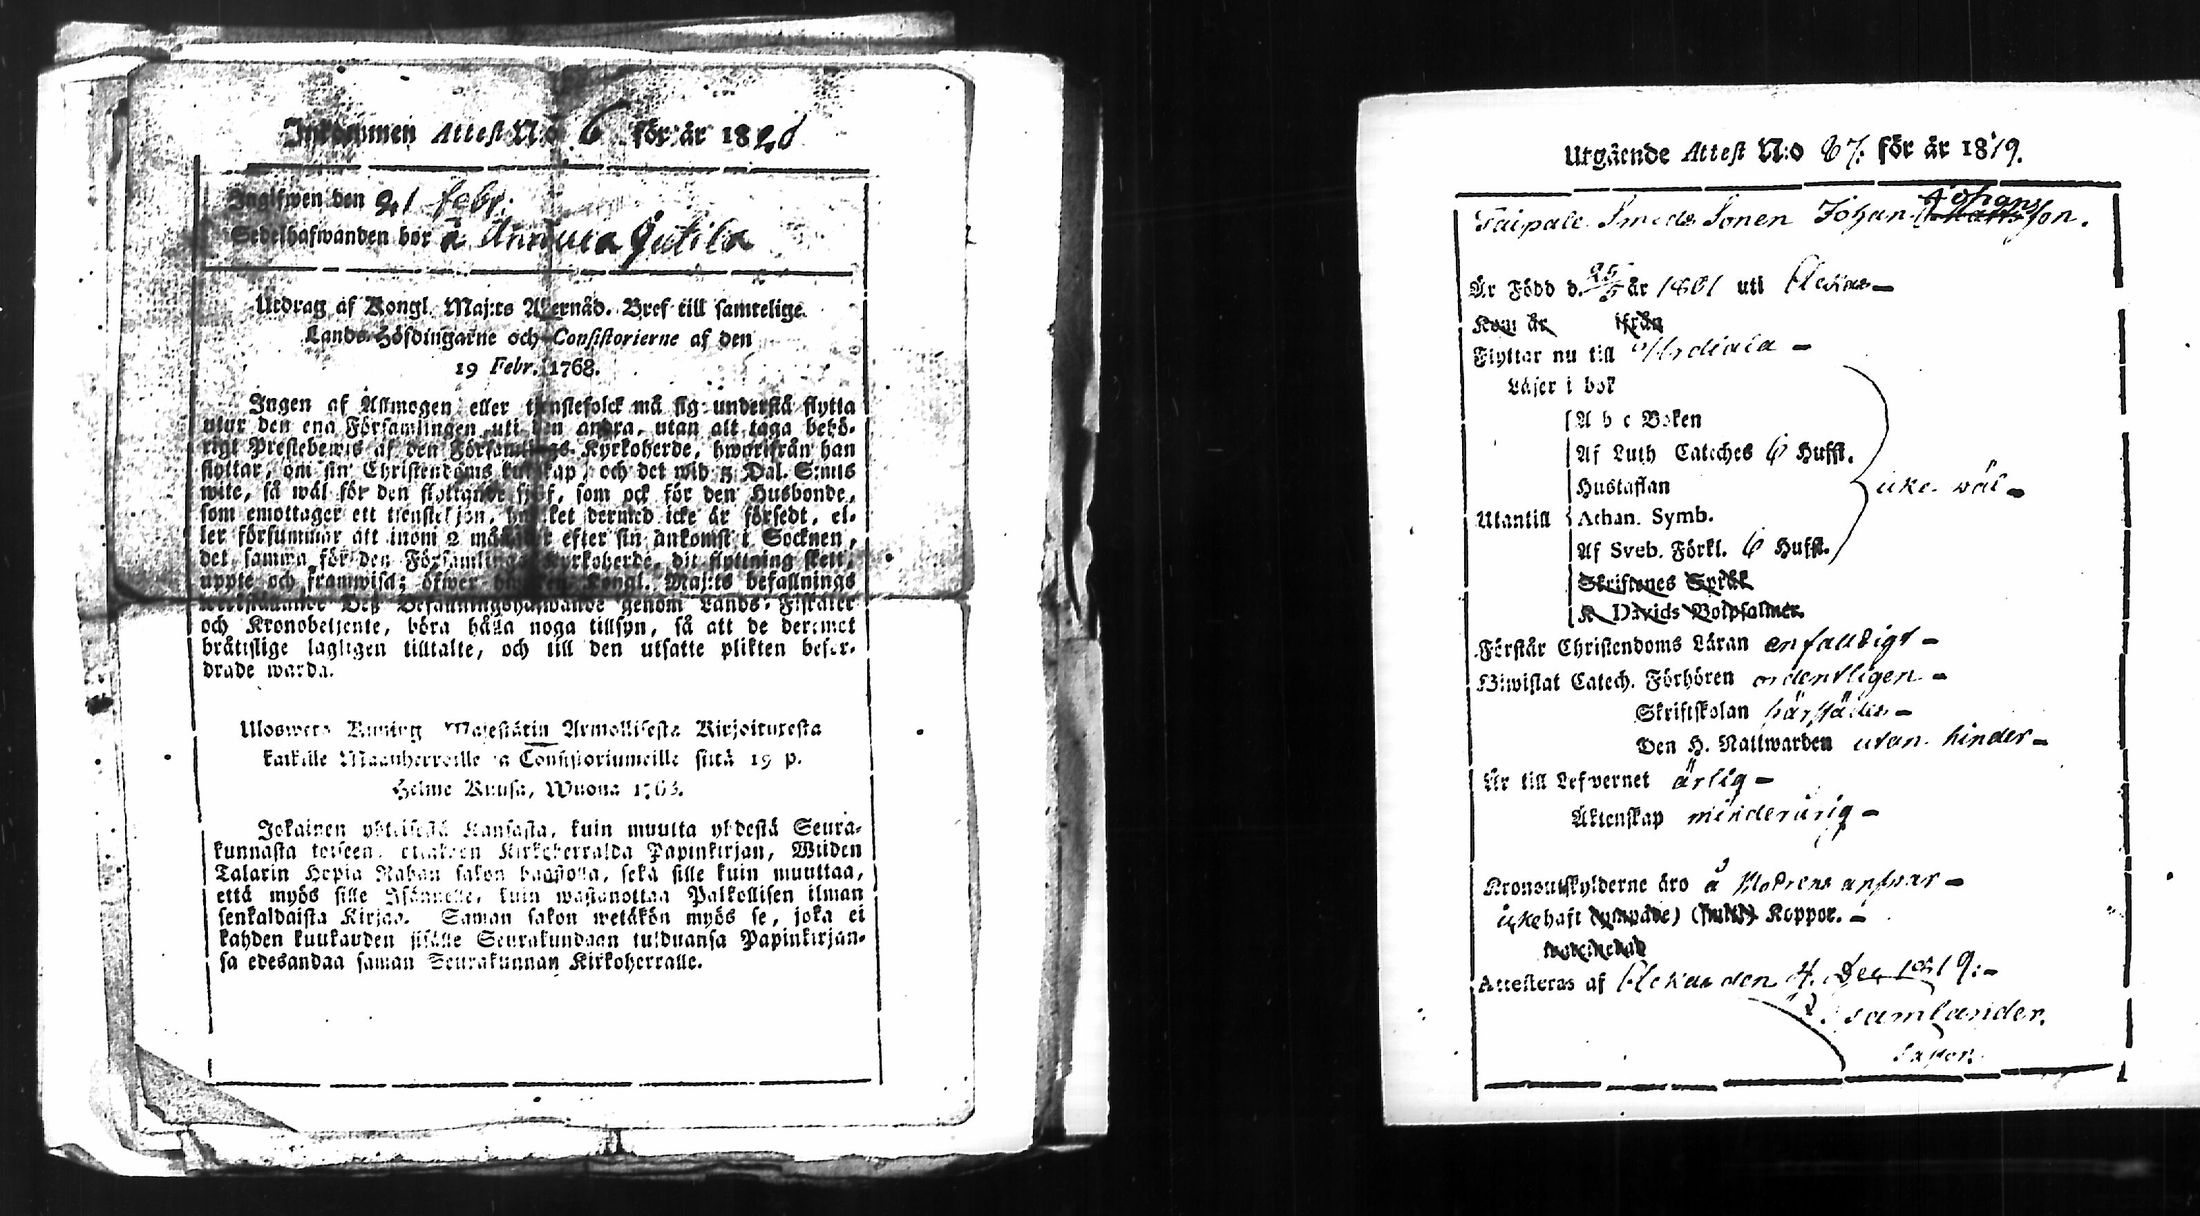 Inkommen Attest N:o 6 för år 1820
Ingifwen den 21 febr.
Sedelhafwanden bor å Annula Jutila
Utdrag af Kongl. Maj:ts Allernåd. Bref till samtelige
Lands-Höfdingarne och Consistorierne af den
19 Febr. 1768.
Ingen af Allmogen eller tjenstefolck må sig understå flytta
utur den ena Församlingen uti den andra, utan att taga behö-
rigt Prestebewis af den Församlings Kyrkoherde, hwarifrån han
flyttar, om sin Christendoms kunskap, och det wid 5 Dal. S:mts
wite, så wäl för den flyttande sjelf, som ock för den Husbonde,
som emottager ett tienstehjon, hwilket dermed icke är försedt, el-
ler försummar att inom 2 månader efter sin ankomst i Socknen,
det samma för den Församlings Kyrkoherde, dit flyttning skett,
uppte och framwisa; öfwer hwilket Kongl. Maj:ts befallnings
Befallningshafwande genom Lands-Fiskaler
och Kronobetjente, böra hålla noga tillsyn, så att de deremot
bråttslige lagligen tilltalte, och till den utsatte plikten befor-
drade warda.
Uloswetо Kuning. Majestätin Armollisesta Kirjoituxesta
kaikille Maanherroille ja Consistoriumeille siitä 19 p.
Helme Kuusa, Wuona 1763.
Jokainen yhteisestä Kansasta, kuin muutta yhdestä Seura-
kunnasta toiseen, ottakoon Kirkoherralda Papinkirjan, Wiiden
Talarin Hopia Rahan sakon haastolla, sekä sille kuin muuttaa,
että myös sille Isännelle, kuin wastanottaa Palkollisen ilman
senkaldaista Kirjaa. Saman sakon wetäkön myös se, joka ei
kahden kuukauden sisälle Seurakundaan tulduansa Papinkirjan-
sa edesandaa saman Seurakunnan Kirkoherralle.
Utgående Attest N:o 67: för år 1819.
Taipale Smeds Sonen Johan Johansson.
Är Född d. 25/5 år 1801 uti Ackas
Kom år ifrån
Flyttar nu till Urdiala
Läser i bok
A b c Boken
Af Luth Cateches 6 Hufst.
Hustaflan
icke wäl
Utantill
Athan. Symb.
Af Sveb. Förkl. 6 Hufst.
Skriftenes Språk
K Davids Botpsalmer.
Förstår Christendoms Läran enfaldigt
Biwistat Catech. Förhören ordentligen
Skriftskolan härstädes
Den H. Nattwarden utan hinder
Är till Lefvernet ärlig
Äktenskap minderårig
Kronoutskylderne äro å Modrens answar
icke haft (ympade) Koppor.
Attesteras af Ackas den 4. Dec 1819:
Samlander.